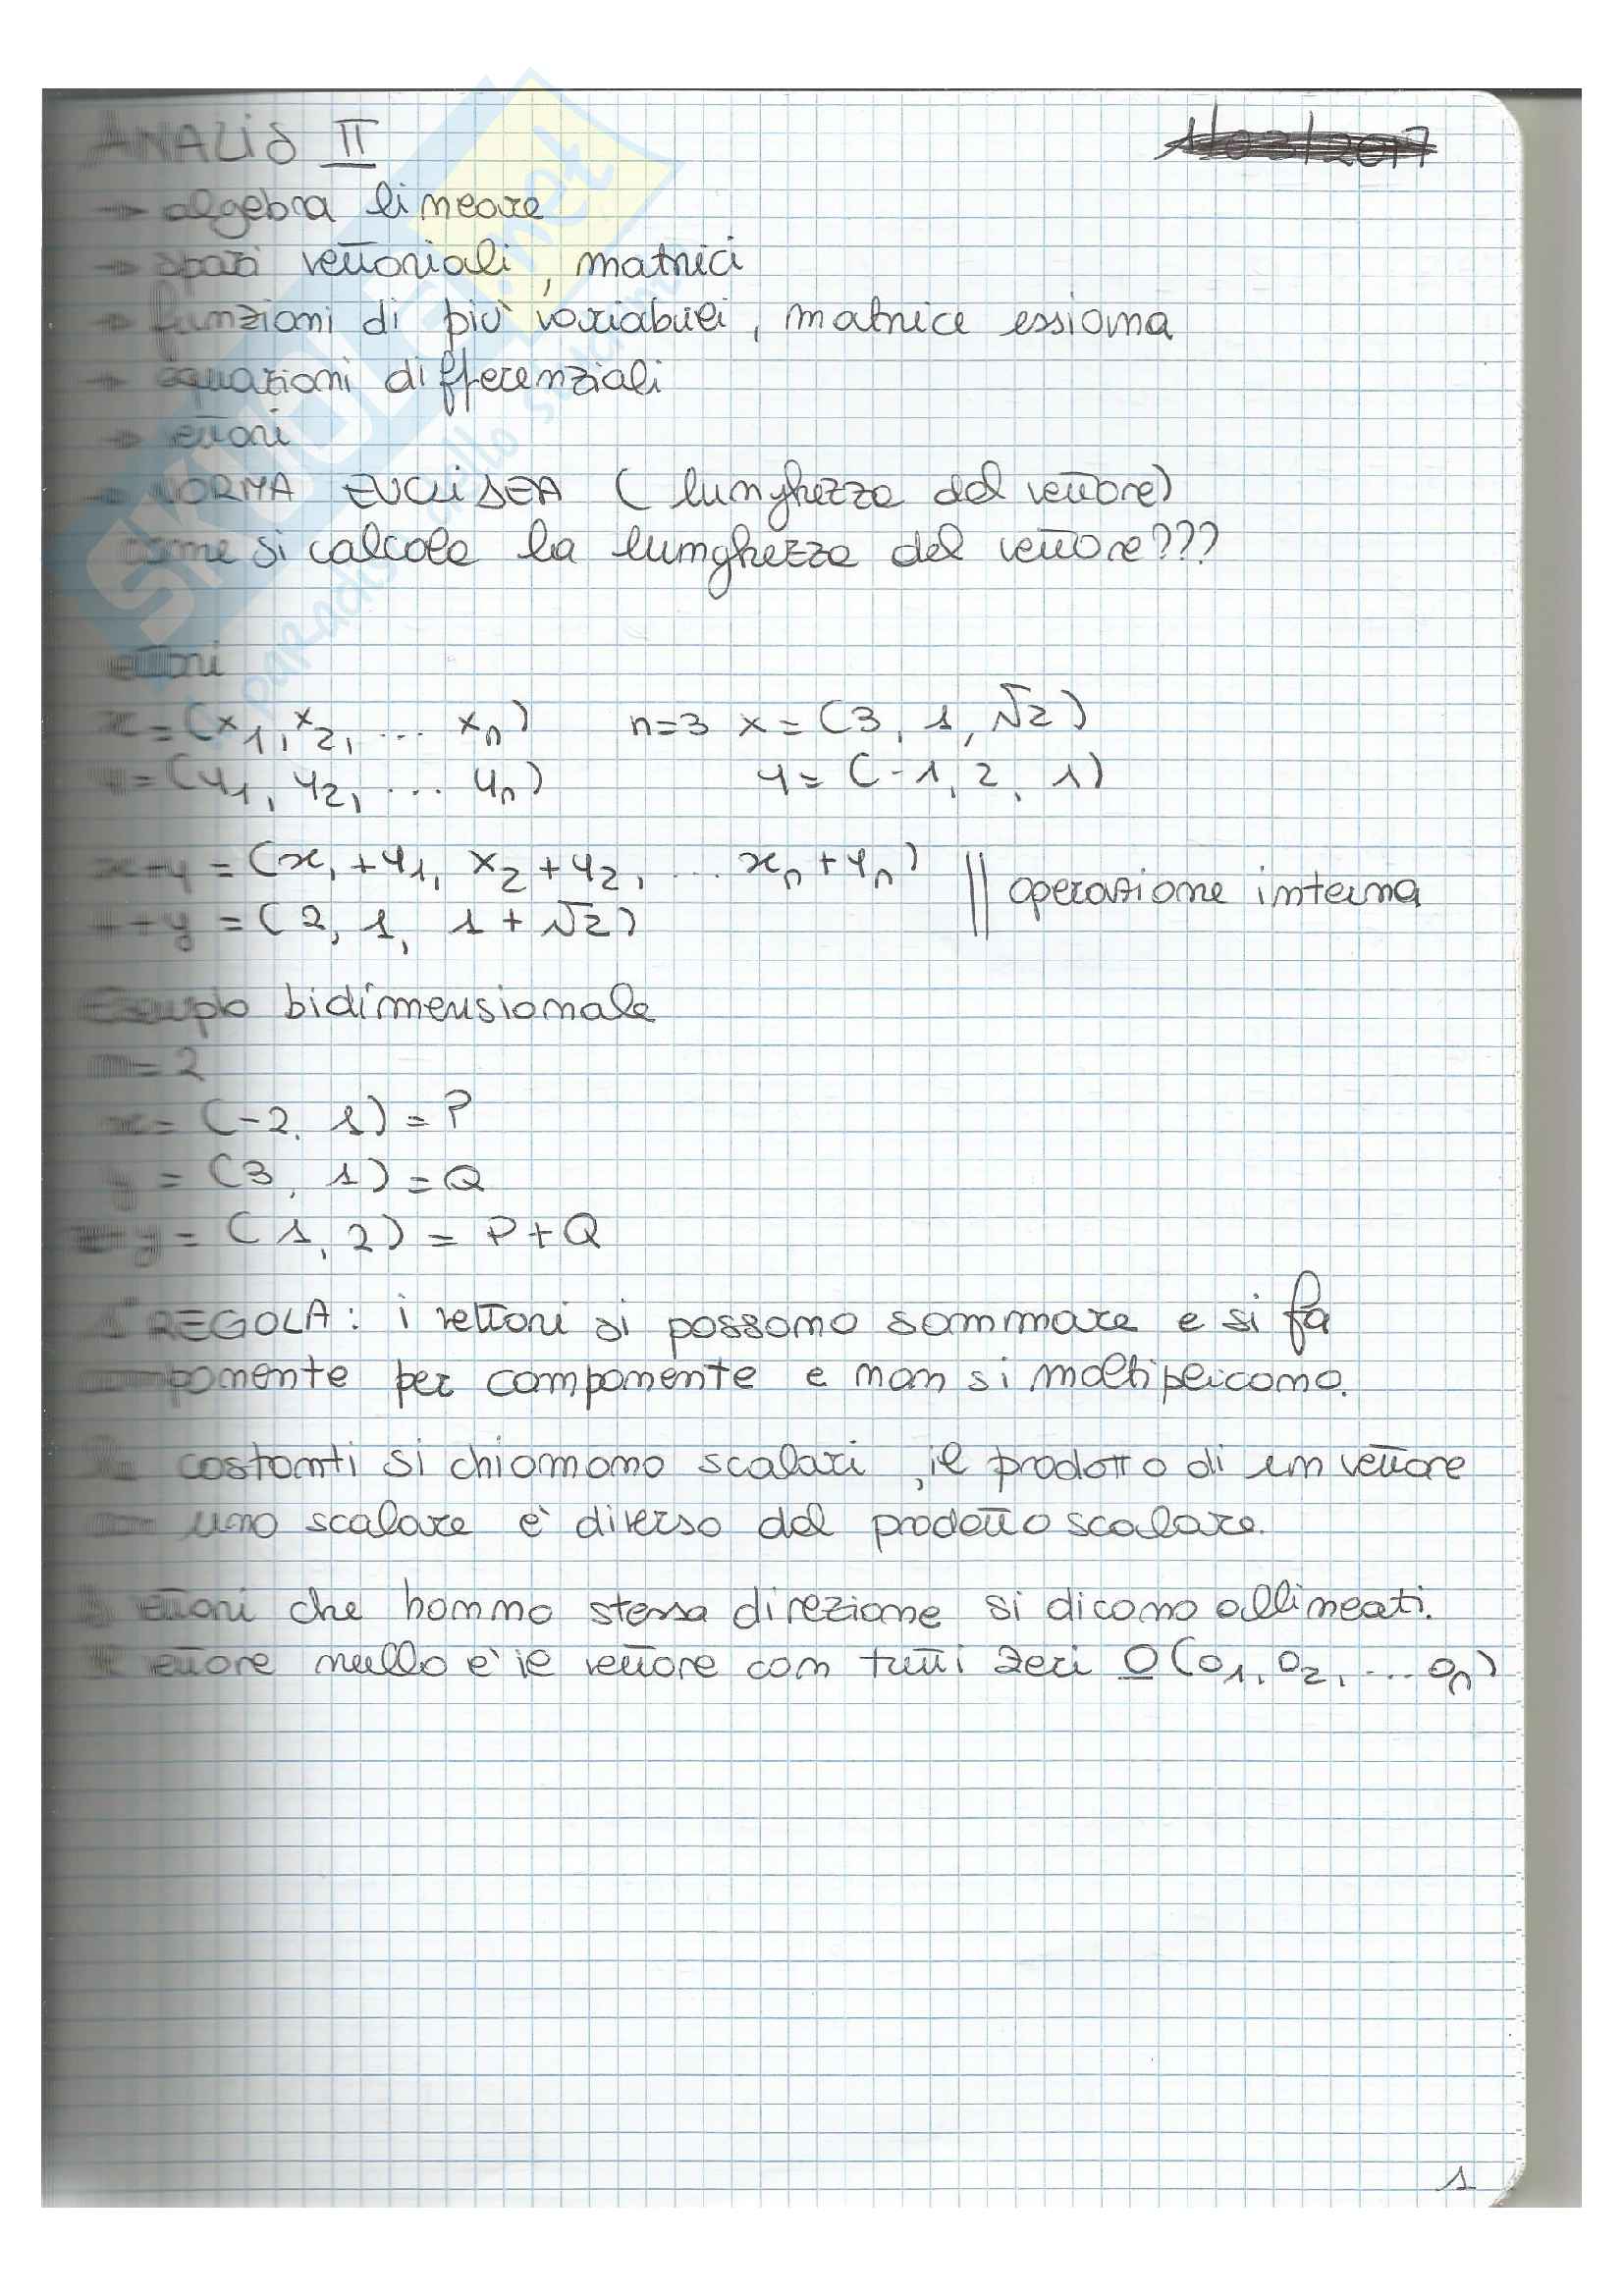 ANALISI II 1/03/2017
→ algebra lineare
→ spazi vettoriali, matrici
→ funzioni di più variabili, matrice essiana
→ equazioni differenziali
→ vettori
→ NORMA EUCLIDEA (lunghezza del vettore)
come si calcola la lunghezza del vettore???
vettori
x = (x₁, x₂, ... xₙ) n=3 x = (3, 1, √2)
y = (y₁, y₂, ... yₙ) y = (-1, 2, 1)
x+y = (x₁+y₁, x₂+y₂, ... xₙ+yₙ) || operazione interna
x+y = (2, 1, 1+√2)
Esempio bidimensionale
n=2
x = (-2, 1) = P
y = (3, 1) = Q
x+y = (1, 2) = P+Q
1ª REGOLA: i vettori si possono sommare e si fa
componente per componente e non si moltiplicano.
costanti si chiamano scalari, il prodotto di un vettore
uno scalare è diverso dal prodotto scalare.
vettori che hanno stessa direzione si dicono allineati.
vettore nullo è il vettore con tutti zeri 0 (0₁, 0₂, ... 0ₙ)
1
SKUOLA.net
paradiso dello studente